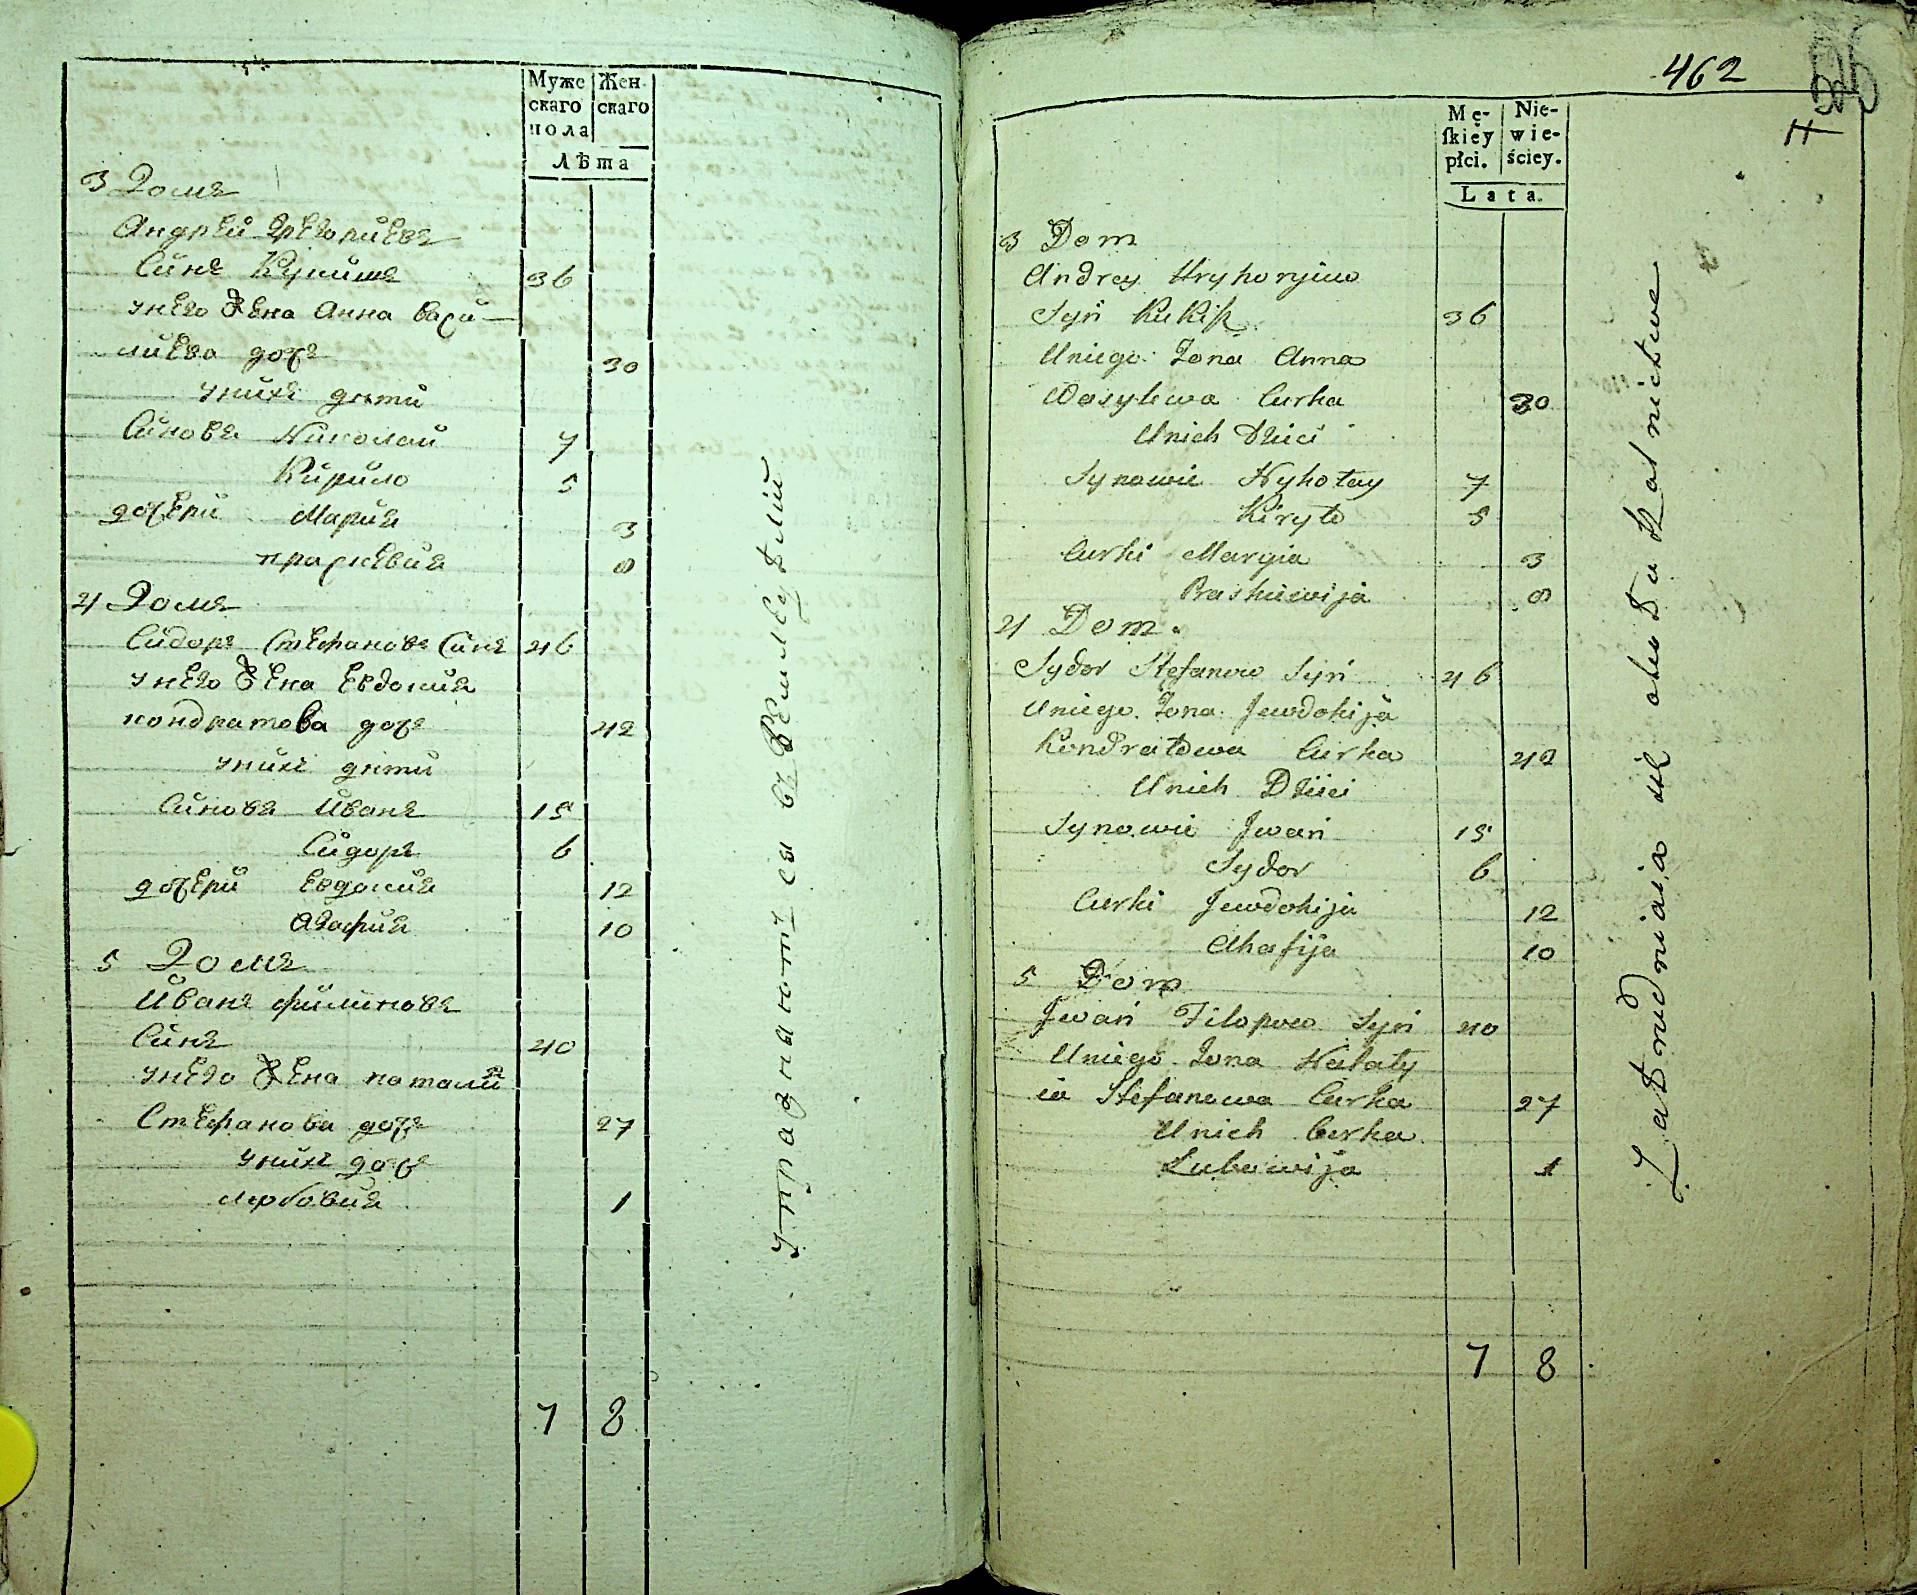 Муже
скаго
пола
Жен-
скаго
Лѣта
3 Домъ
Андрей Григориевъ
Синъ Кукишъ 36
унего жена Анна Васи-
лиева дочь 30
унихъ дѣти
Синовя Николай 7
Кирило 5
дочери Мария 3
праскевия 8
4 Домъ
Сидоръ Стефановъ Синъ 46
унего жена Евдокия
кондратова дочь 42
унихъ дѣти
Синовя Иванъ 15
Сидоръ 6
дочери Евдокия 12
Агафия 10
5 Домъ
Иванъ филиповъ
Синъ 40
унего жена наталия
Стефанова дочь 27
унихъ дочь
любовия 1
7 8
упражнаютъ ся въ Земледѣлии
462
H
Mę-
ſkiéy
płci.
Nie-
wie-
ściey.
Lata.
3 Dom
Andrey Hryhoryiw
Syń Kukiſz 36
Uniego Żona Anna
Wasylewa Curka 30
Unich Dzieci
Synowie Nykołay 7
Kiryło 5
Curki Maryia 3
Praskiewija 8
4 Dom
Sydor Stefanow Syń 46
Uniego Żona Jewdokija
Kondratowa Curka 42
Unich Dzieci
Synowie Jwań 15
Sydor 6
Curki Jewdokija 12
Ahafija 10
5 Dom
Jwań Filopow Syń 40
Uniego Żona Natały
ia Stefanowa Curka 27
Unich Curka
Lubowija 1
7 8
Zatrudniaią się około Rolnictwa